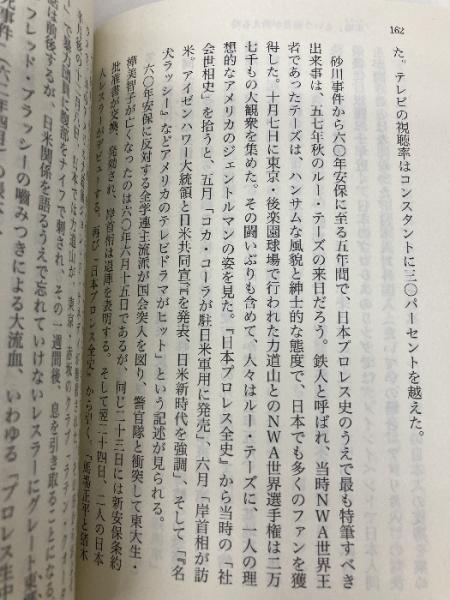 162
た。テレビの視聴率はコンスタントに三〇パーセントを越えた。
砂川事件から六〇年安保に至る五年間で、日本プロレス史のうえで最も特筆すべき
出来事は、五七年秋のルー・テーズの来日だろう。鉄人と呼ばれ、当時NWA世界王
者であったテーズは、ハンサムな風貌と紳士的な態度で、日本でも多くのファンを獲
得した。十月七日に東京・後楽園球場で行われた力道山とのNWA世界選手権は二万
七千もの大観衆を集めた。その闘いぶりも含めて、人々はルー・テーズに、一人の理
想的なアメリカのジェントルマンの姿を見た。『日本プロレス全史』から当時の「社
会世相史」を拾うと、五月「コカ・コーラが駐日米軍用に発売」、六月「岸首相が訪
米。アイゼンハワー大統領と日米共同宣言を発表、日米新時代を強調」、そして「『名
犬ラッシー』などアメリカのテレビドラマがヒット」という記述が見られる。
六〇年安保に反対する全学連主流派が国会突入を図り、警官隊と衝突して東大生・
樺美智子が亡くなったのは六〇年六月十五日であるが、同じ二十三日には新安保条約
批准書が交換、発効され、岸首相は退陣を表明する。そして
二十四日、二人の日本
人レスラーがデビューする。再び『日本プロレス全史』から引く。「馬場正平と猪木
で暴力団員に腹部をナイフで刺され、その一週間後、息を引き取ることになる。
は前後するが、日米関係を語るうえで忘れていけないレスラーに
フレッド・ブラッシーの嚙みつきによる大流血、いわゆる「プロレス生中